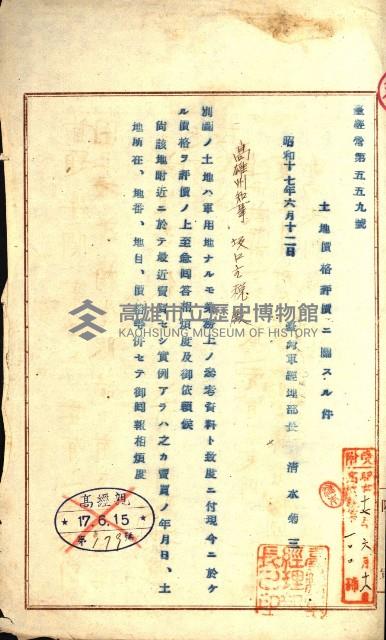 臺經營第五五九號
土地價格評價ニ關スル件
昭和十七年六月十二日
海軍經理部長 清水菊三
高雄州知事 坂口主税殿
別圖ノ土地ハ軍用地ナルモ業務上ノ參考資料ト致度ニ付現今ニ於ケ
ル價格ヲ評價ノ上至急回答相煩度及御依賴候
尚該地附近ニ於テ最近賣買セシ實例アラハ之カ賣買ノ年月日、土
地所在、地番、地目、價格等併セテ御回報相煩度
高經理
17.6.15
第179號
高雄市立歷史博物館
KAOHSIUNG MUSEUM OF HISTORY